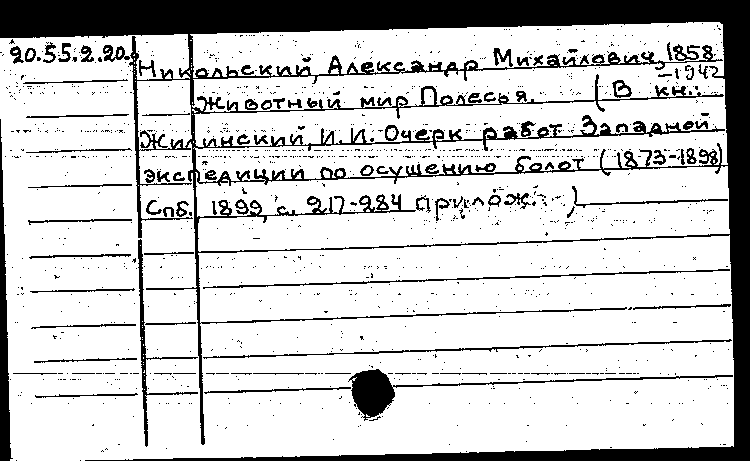 20.55.2.20.9
Никольский, Александр Михайлович, 1858
-1942
Животный мир Полесья. (В кн.:
Жилинский, И.И. Очерк работ Западной
экспедиции по осушению болот (1873-1898)
Спб., 1899, с. 217-284 прилож.)